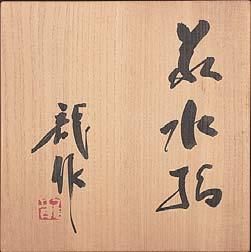 萩水指
龍作